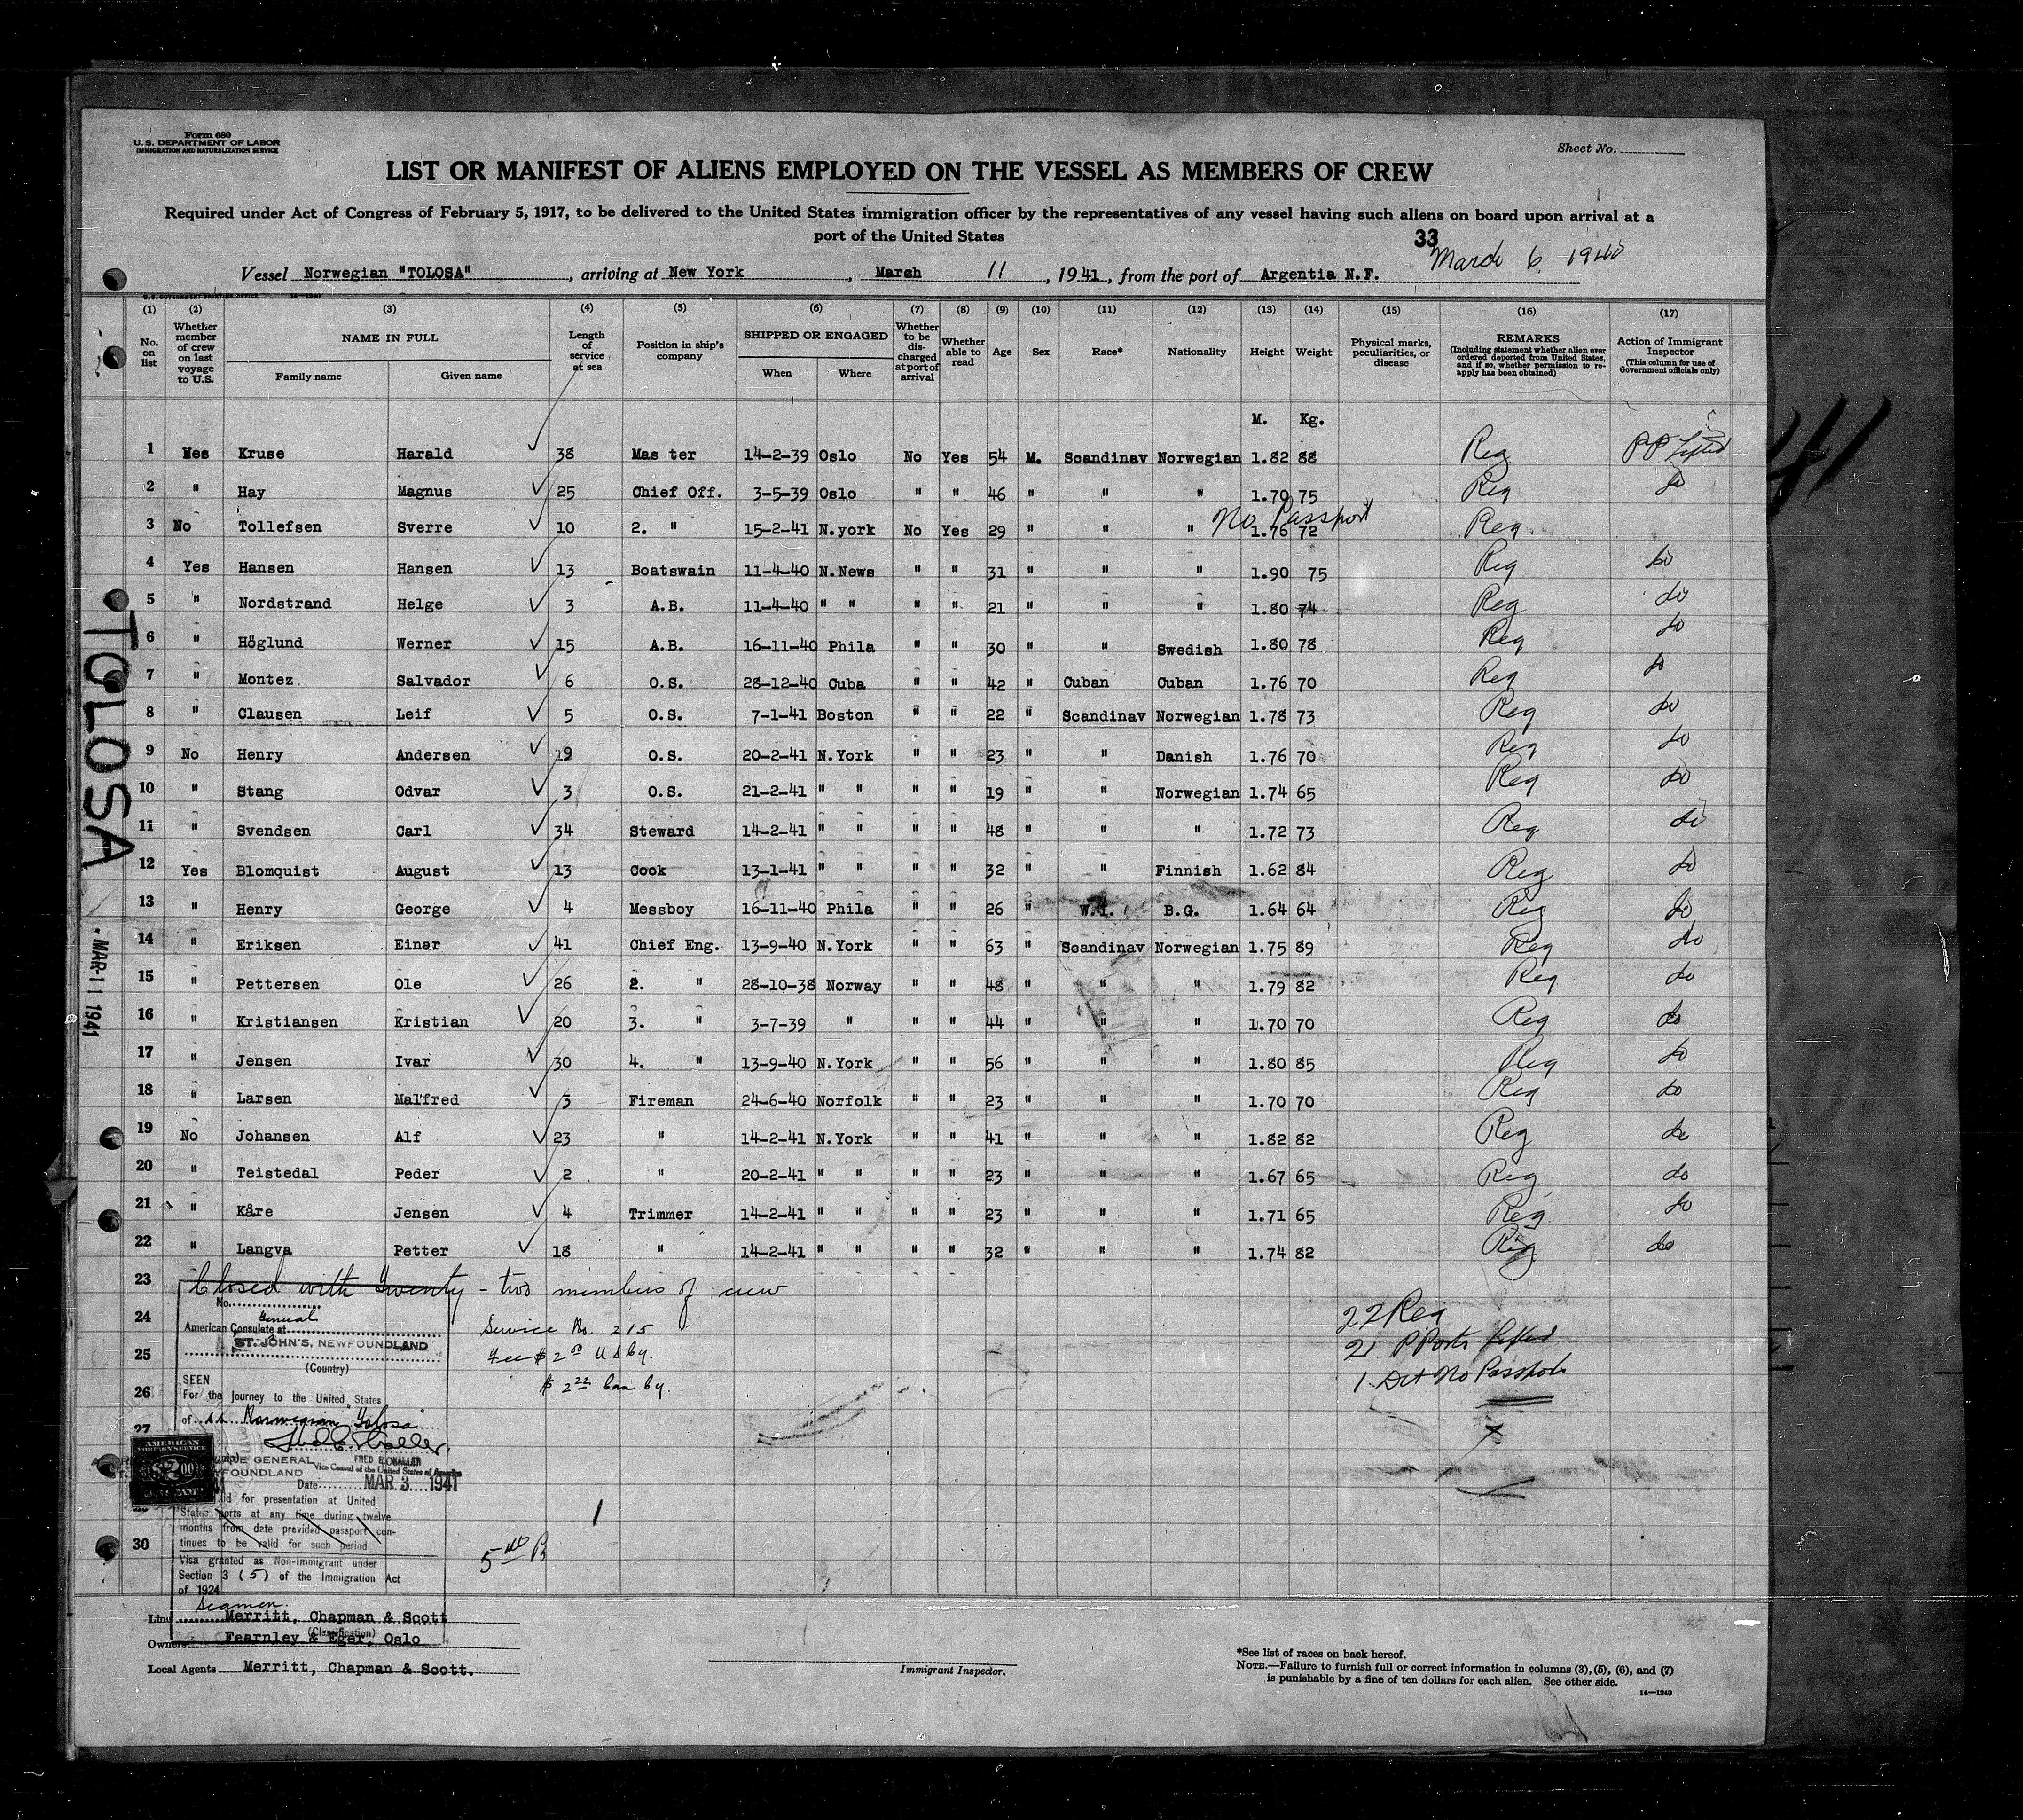 Form 680
U.S. DEPARTMENT OF LABOR
IMMIGRATION AND NATURALIZATION SERVICE
Sheet No.
LIST OR MANIFEST OF ALIENS EMPLOYED ON THE VESSEL AS MEMBERS OF CREW
Required under Act of Congress of February 5, 1917, to be delivered to the United States immigration officer by the representatives of any vessel having such aliens on board upon arrival at a
port of the United States
33
March 6, 1940
Vessel Norwegian "TOLOSA", arriving at New York, March 11, 1941, from the port of Argentia N.F.
U.S. GOVERNMENT PRINTING OFFICE 14—1240
(1) (2) (3) (4) (5) (6) (7) (8) (9) (10) (11) (12) (13) (14) (15) (16) (17)
No. on list
Whether member of crew on last voyage to U.S.
NAME IN FULL
Family name
Given name
Length of service at sea
Position in ship's company
SHIPPED OR ENGAGED
When
Where
Whether to be discharged at port of arrival
Whether able to read
Age
Sex
Race*
Nationality
Height
Weight
Physical marks, peculiarities, or disease
REMARKS
(Including statement whether alien ever ordered deported from United States, and if so, whether permission to reapply has been obtained)
Action of Immigrant Inspector
(This column for use of Government officials only)
M. Kg.
1 Yes Kruse Harald 38 Mas ter 14-2-39 Oslo No Yes 54 M. Scandinav Norwegian 1.82 88 Reg PP Lifted
2 " Hay Magnus 25 Chief Off. 3-5-39 Oslo " " 46 " " " 1.70 75 Reg do
No Passport
3 No Tollefsen Sverre 10 2. " 15-2-41 N.york No Yes 29 " " " 1.76 72 Reg.
4 Yes Hansen Hansen 13 Boatswain 11-4-40 N.News " " 31 " " " 1.90 75 Reg do
5 " Nordstrand Helge 3 A.B. 11-4-40 " " " " 21 " " " 1.80 74 Reg do
6 " Höglund Werner 15 A.B. 16-11-40 Phila " " 30 " " Swedish 1.80 78 Reg do
7 " Montez Salvador 6 O.S. 28-12-40 Cuba " " 42 " Cuban Cuban 1.76 70 Reg do
8 " Clausen Leif 5 O.S. 7-1-41 Boston " " 22 " Scandinav Norwegian 1.78 73 Reg do
9 No Henry Andersen 19 O.S. 20-2-41 N.York " " 23 " " Danish 1.76 70 Reg do
10 " Stang Odvar 3 O.S. 21-2-41 " " " " 19 " " Norwegian 1.74 65 Reg do
11 " Svendsen Carl 34 Steward 14-2-41 " " " " 48 " " " 1.72 73 Reg do
12 Yes Blomquist August 13 Cook 13-1-41 " " " " 32 " " Finnish 1.62 84 Reg do
13 " Henry George 4 Messboy 16-11-40 Phila " " 26 " W.I. B.G. 1.64 64 Reg do
14 " Eriksen Einar 41 Chief Eng. 13-9-40 N.York " " 63 " Scandinav Norwegian 1.75 89 Reg do
15 " Pettersen Ole 26 2. " 28-10-38 Norway " " 48 " " " 1.79 82 Reg do
16 " Kristiansen Kristian 20 3. " 3-7-39 " " " 44 " " " 1.70 70 Reg do
17 " Jensen Ivar 30 4. " 13-9-40 N.York " " 56 " " " 1.80 85 Reg do
18 " Larsen Malfred 3 Fireman 24-6-40 Norfolk " " 23 " " " 1.70 70 Reg do
19 No Johansen Alf 23 " 14-2-41 N.York " " 41 " " " 1.82 82 Reg do
20 " Teistedal Peder 2 " 20-2-41 " " " " 23 " " " 1.67 65 Reg do
21 " Kåre Jensen 4 Trimmer 14-2-41 " " " " 23 " " " 1.71 65 Reg do
22 " Langva Petter 18 " 14-2-41 " " " " 32 " " " 1.74 82 Reg do
23 Closed with Twenty-two members of crew
24
25
26
27
30
No.
American Consulate General at
ST. JOHN'S, NEWFOUNDLAND
(Country)
SEEN
For the journey to the United States
of s.s. Norwegian "Tolosa"
FRED E. WALLER
Vice Consul of the United States of America
Date MAR 3 1941
AMERICAN
FOREIGN SERVICE
for presentation at United
States ports at any time during twelve
months from date provided passport con-
tinues to be valid for such period
Visa granted as Non-Immigrant under
Section 3 (5) of the Immigration Act
of 1924
Seamen.
(Classification)
Service No. 215
Fee $2.00 U S Cy.
$2.22 Can Cy.
22 Reg
21 P Ports lifted
1 Det No Passport
Line Merritt, Chapman & Scott
Owners Fearnley & Eger, Oslo
Local Agents Merritt, Chapman & Scott.
Immigrant Inspector.
*See list of races on back hereof.
NOTE.—Failure to furnish full or correct information in columns (3), (5), (6), and (7)
is punishable by a fine of ten dollars for each alien. See other side.
14—1240
TOLOSA
MAR 11 1941
41